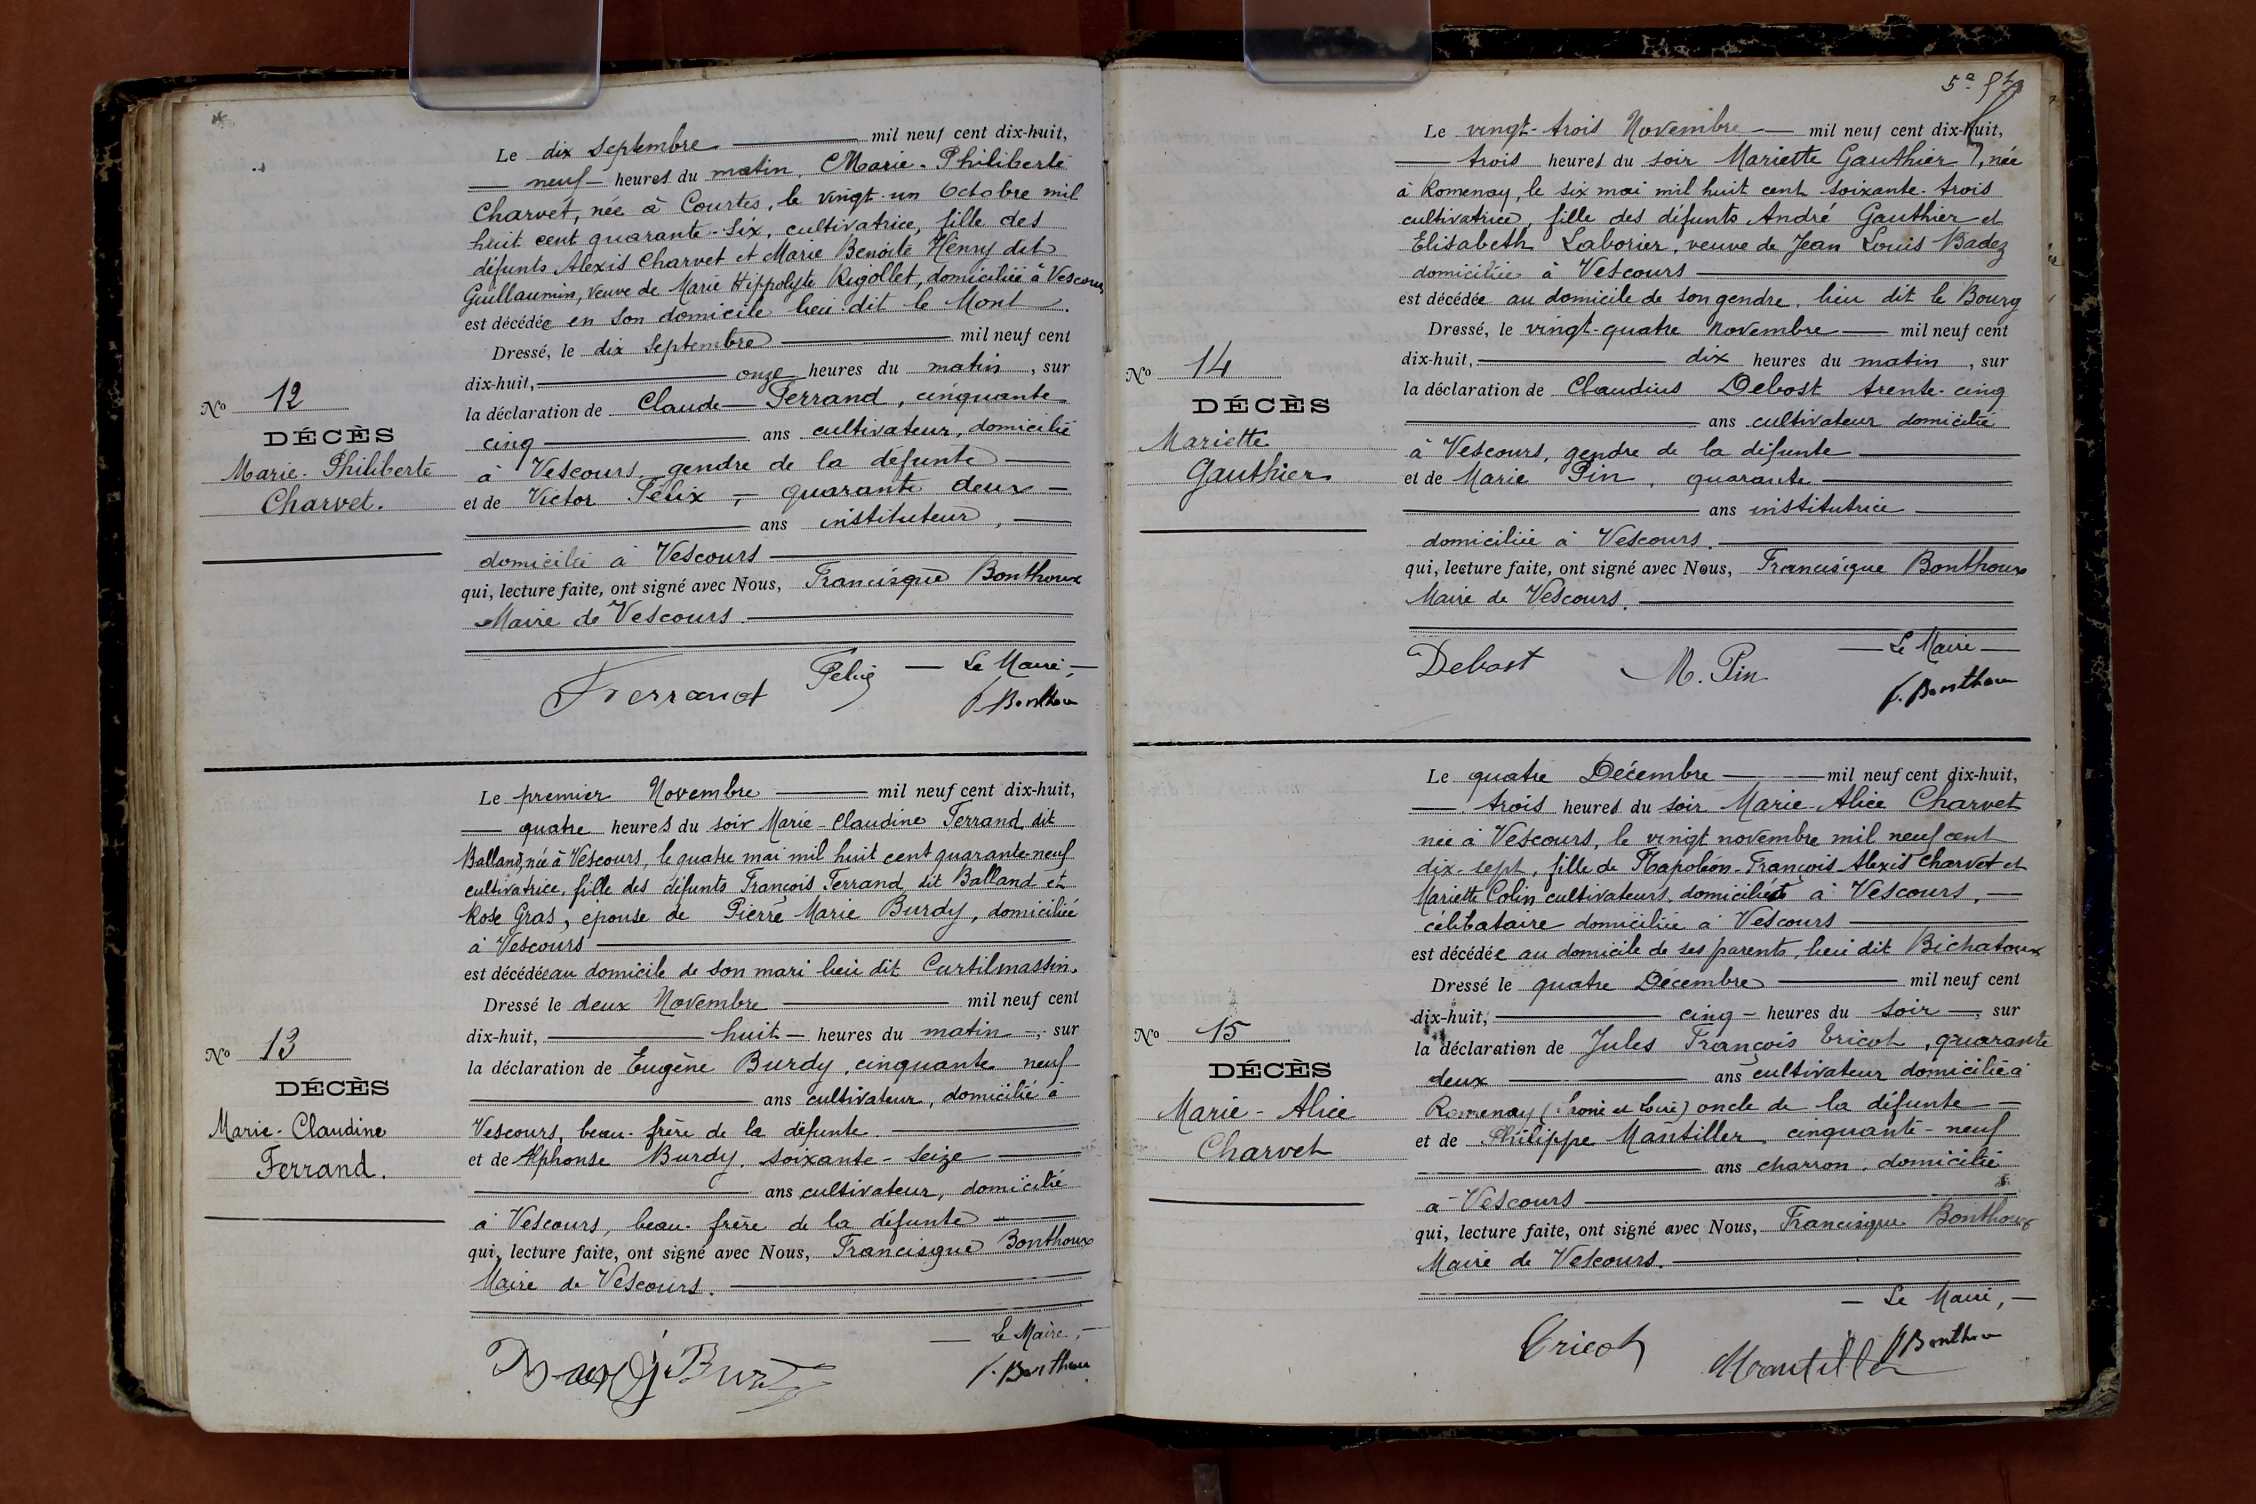 Le dix septembre mil neuf cent dix-huit,
neuf heures du matin, Marie-Philiberte
Charvet, née à Courtes, le vingt-un Octobre mil
huit cent quarante-six, cultivatrice, fille des
défunts Alexis Charvet et Marie Benoite Henry dit
Guillaumin, veuve de Marie Hippolyte Rigollet, domiciliée à Vescours
est décédée en son domicile lieu dit le Mont.
Dressé, le dix septembre mil neuf cent
dix-huit, onze heures du matin, sur
la déclaration de Claude Ferrand, cinquante
cinq ans cultivateur, domicilié
à Vescours gendre de la defunte
et de Victor Félix, quarante deux
ans instituteur,
domicilié à Vescours
qui, lecture faite, ont signé avec Nous, Francisque Bonthoux
Maire de Vescours.
Ferrand Félix Le Maire,
F. Bonthoux
No 12
DÉCÈS
Marie-Philiberte
Charvet.
Le premier Novembre mil neuf cent dix-huit,
quatre heures du soir Marie-Claudine Ferrand dit
Balland, née à Vescours, le quatre mai mil huit cent quarante-neuf
cultivatrice, fille des défunts François Ferrand dit Balland et
Rose Gras, épouse de Pierre Marie Burdy, domiciliée
à Vescours
est décédée au domicile de son mari lieu dit Curtilmassin.
Dressé le deux Novembre mil neuf cent
dix-huit, huit heures du matin, sur
la déclaration de Eugène Burdy, cinquante neuf
ans cultivateur, domicilié à
Vescours, beau-frère de la défunte.
et de Alphonse Burdy, soixante-seize
ans cultivateur, domicilié
à Vescours, beau-frère de la défunte
qui, lecture faite, ont signé avec Nous, Francisque Bonthoux
Maire de Vescours.
Le Maire,
F. Bonthoux
No 13
DÉCÈS
Marie-Claudine
Ferrand.
5e
Le vingt-trois Novembre mil neuf cent dix-huit,
trois heures du soir Mariette Gauthier, née
à Romenay, le six mai mil huit cent soixante-trois
cultivatrice, fille des défunts André Gauthier et
Elisabeth Laborier, veuve de Jean Louis Badez
domiciliée à Vescours
est décédée au domicile de son gendre, lieu dit le Bourg
Dressé, le vingt-quatre Novembre mil neuf cent
dix-huit, dix heures du matin, sur
la déclaration de Claudius Debost trente-cinq
ans cultivateur domicilié
à Vescours, gendre de la défunte
et de Marie Pin, quarante
ans institutrice
domiciliée à Vescours.
qui, lecture faite, ont signé avec Nous, Francisque Bonthoux
Maire de Vescours.
Debost M. Pin Le Maire
F. Bonthoux
No 14
DÉCÈS
Mariette
Gauthier
Le quatre Décembre mil neuf cent dix-huit,
trois heures du soir Marie-Alice Charvet
née à Vescours, le vingt novembre mil neuf cent
dix-sept, fille de Napoléon-François-Alexis Charvet et
Mariette Colin cultivateurs, domiciliés à Vescours,
célibataire domiciliée à Vescours
est décédée au domicile de ses parents, lieu dit Bichatoux
Dressé le quatre Décembre mil neuf cent
dix-huit, cinq heures du soir, sur
la déclaration de Jules François Tricot, quarante
deux ans cultivateur domicilié à
Romenay (Saone et Loire) oncle de la défunte
et de Philippe Mantiller, cinquante-neuf
ans charron, domicilié
à Vescours
qui, lecture faite, ont signé avec Nous, Francisque Bonthoux
Maire de Vescours.
Le Maire,
Tricot Mantiller F. Bonthoux
No 15
DÉCÈS
Marie-Alice
Charvet